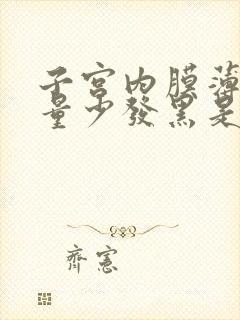 子宫内膜薄
量少发黑是
齐宪